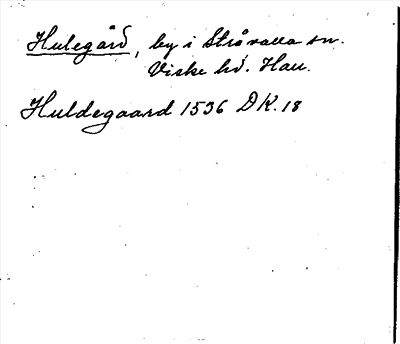 Hulegård, by i Stråvalla sn.
Viske hd. Hall.
Huldegaard 1536 DK. 18